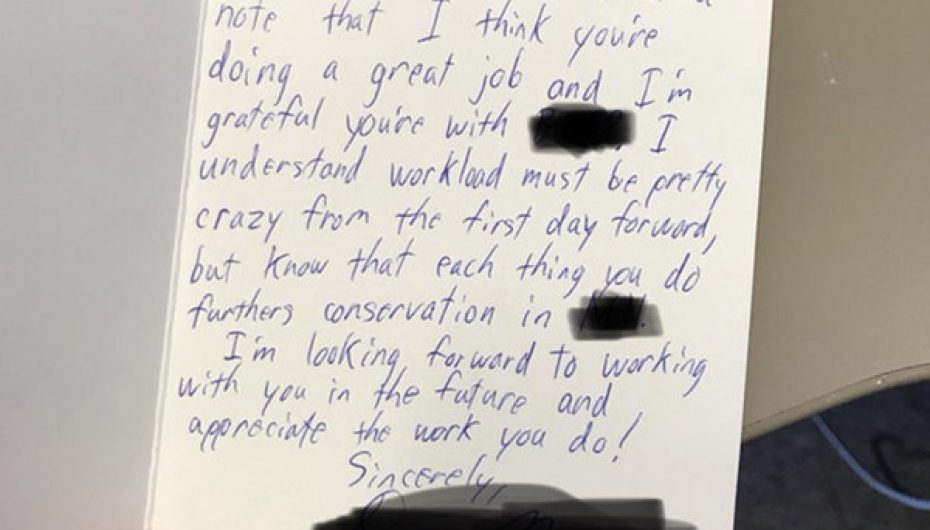 note that I think you're
doing a great job and I'm
grateful you're with I
understand workload must be pretty
crazy from the first day forward,
but know that each thing you do
furthers conservation in
I'm looking forward to working
with you in the future and
appreciate the work you do!
Sincerely,